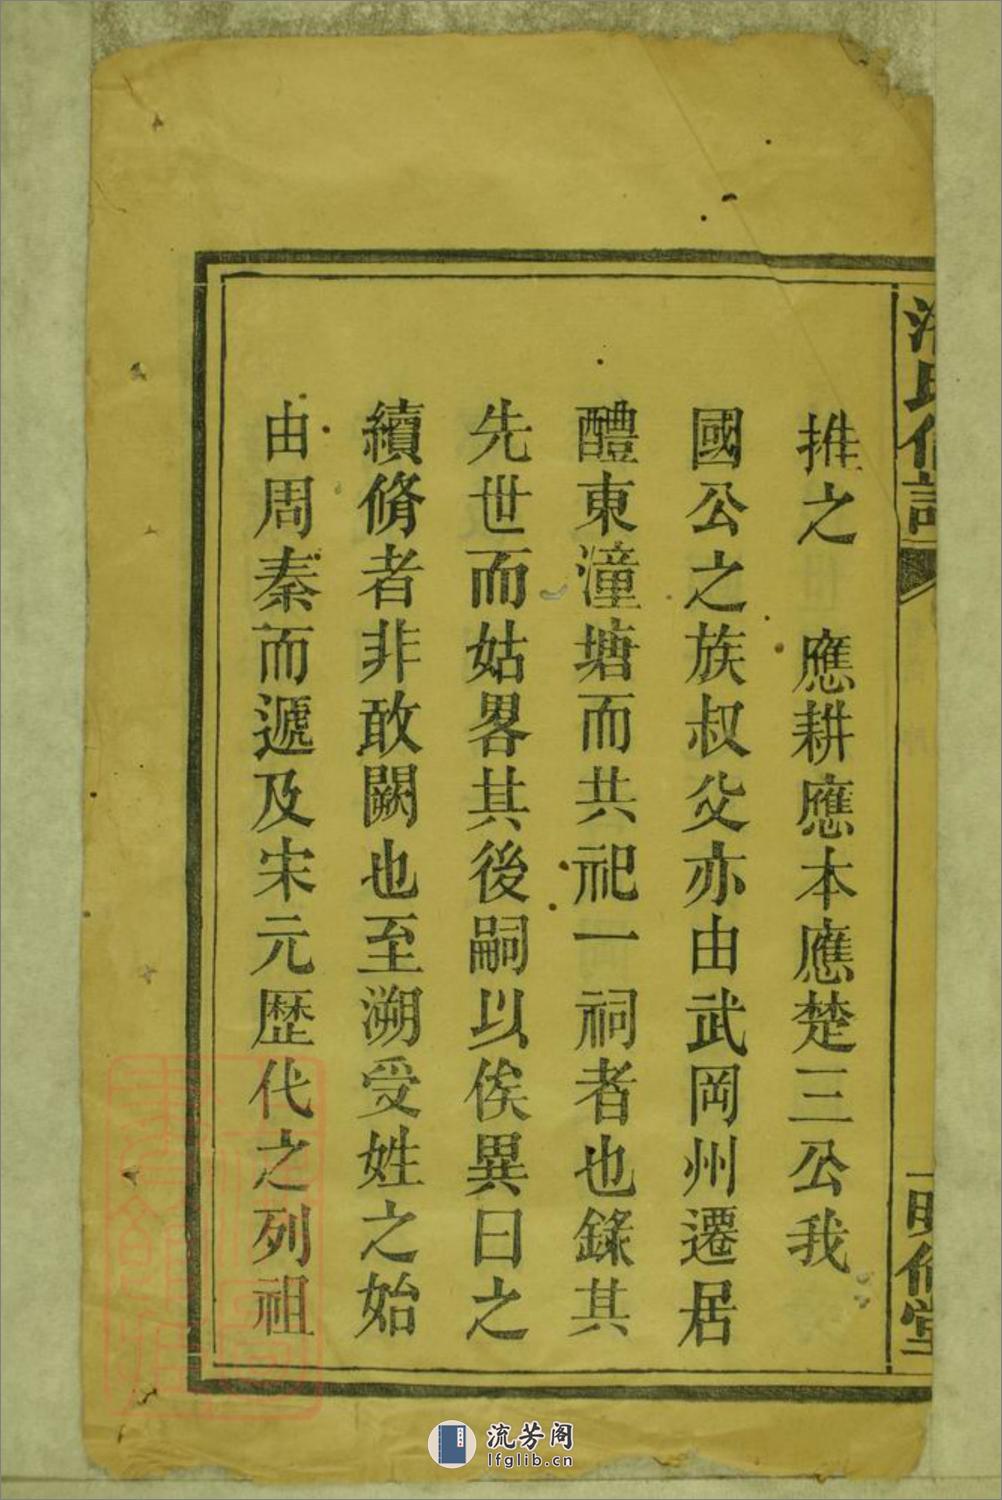 推之　應耕應本應楚三公我
國公之族叔父亦由武岡州遷居
醴東潼塘而共祀一祠者也錄其
先世而姑畧其後嗣以俟異曰之
續脩者非敢闕也至溯受姓之始
由周秦而遞及宋元歷代之列祖
氏
修堂
流芳阁
lfglib.cn